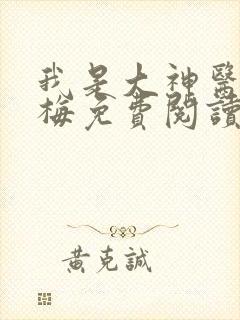 我是大神醫
梅免費閱讀
黃克誠